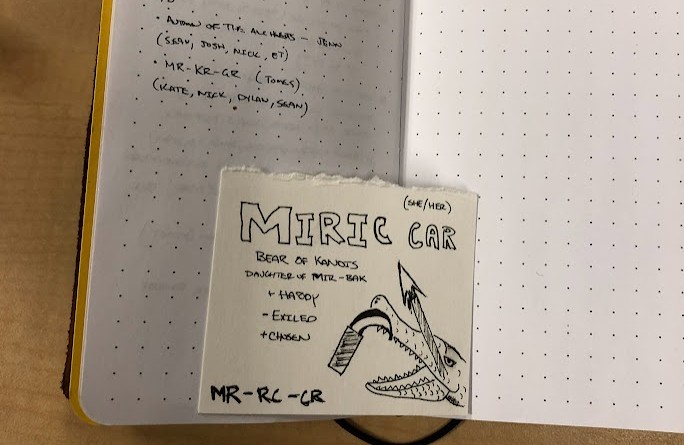 AUTUMN OF THE ANCHORS – JENN
(SEAN, JOSH, NICK, ET)
• MR-KR-GR (TOMES)
(KATE, NICK, DYLAN, SEAN)
(SHE/HER)
MIRIC CAR
BEAR OF KANDIS
DAUGHTER OF MIR-BAK
+ HARDY
- EXILED
+ CHOSEN
MR-RC-CR